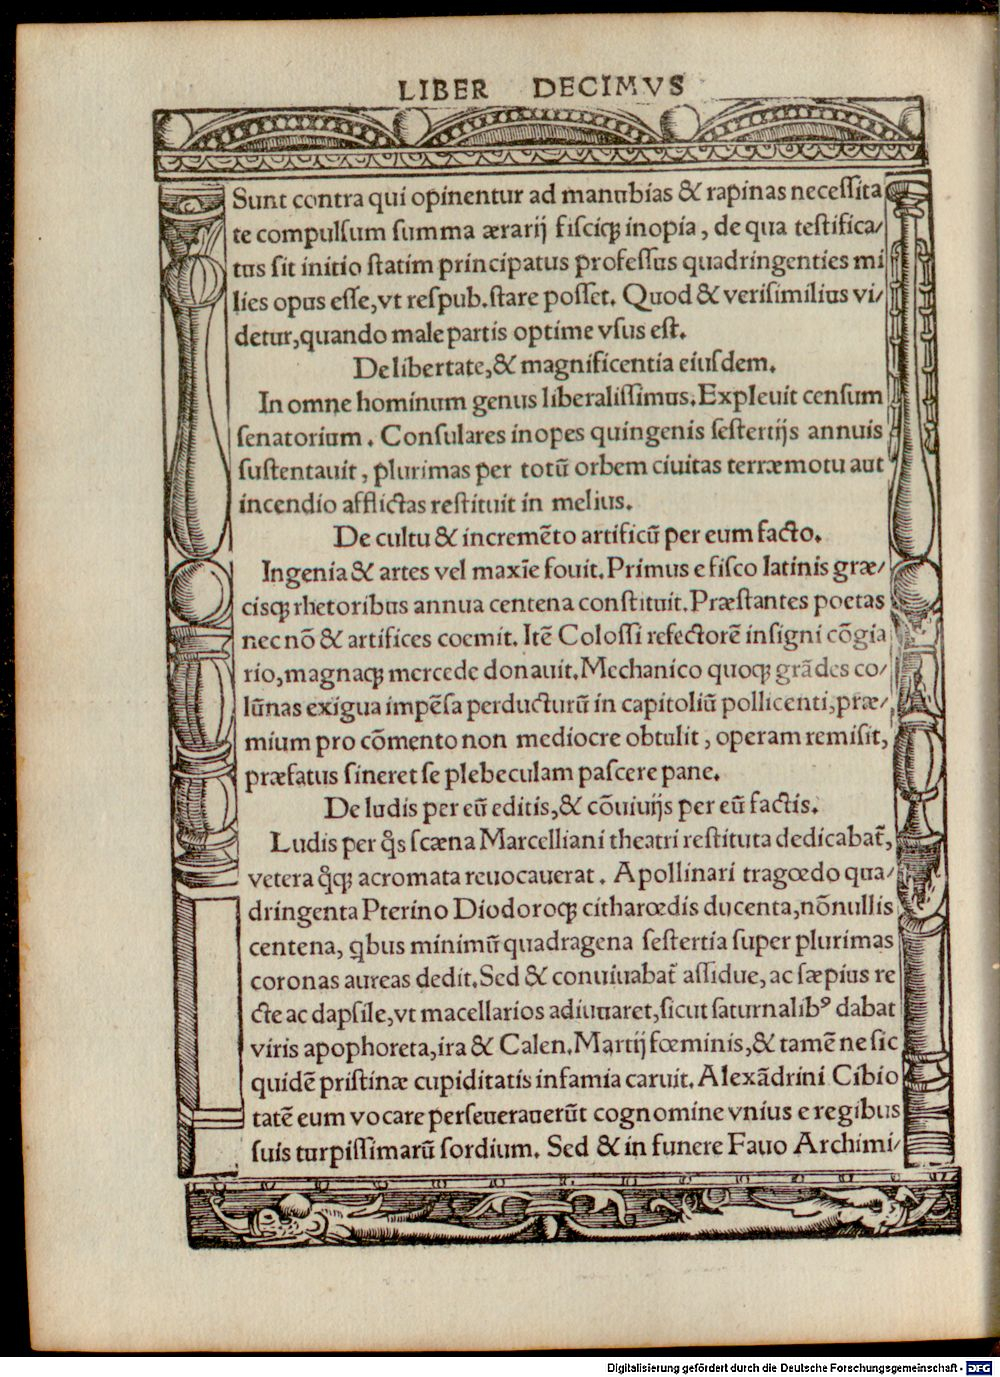 LIBER DECIMVS
Sunt contra qui opinentur ad manubias & rapinas neceſſita
te compulſum ſumma ærarij fiſciqꝫ inopia, de qua teſtifica/
tus ſit initio ſtatim principatus profeſſus quadringenties mi
lies opus eſſe,vt reſpub.ſtare poſſet. Quod & veriſimilius vi/
detur,quando male partis optime vſus eſt.
De libertate,& magnificentia eiuſdem.
In omne hominum genus liberaliſſimus.Expleuit cenſum
ſenatorium. Conſulares inopes quingenis ſeſtertijs annuis
ſuſtentauit, plurimas per totũ orbem ciuitas terræmotu aut
incendio afflictas reſtituit in melius.
De cultu & incremẽto artificũ per eum facto.
Ingenia & artes vel maxĩe fouit.Primus e fiſco latinis græ/
ciſqꝫ rhetoribus annua centena conſtituit.Præſtantes poetas
nec nõ & artifices coemit. Itẽ Coloſſi refectorẽ inſigni cõgia
rio,magnaqꝫ mercede donauit.Mechanico quoqꝫ grãdes co/
lũnas exigua impẽſa perducturũ in capitoliũ pollicenti,præ/
mium pro cõmento non mediocre obtulit, operam remiſit,
præfatus ſineret ſe plebeculam paſcere pane.
De ludis per eũ editis,& cõuiuijs per eũ factis.
Ludis per q̃s ſcæna Marcelliani theatri reſtituta dedicabat̃,
vetera q̃qꝫ acromata reuocauerat. Apollinari tragœdo qua/
dringenta Pterino Diodoroqꝫ citharœdis ducenta,nõnullis
centena, qbus minimũ quadragena ſeſtertia ſuper plurimas
coronas aureas dedit.Sed & conuiuabat̃ aſſidue, ac ſæpius re
cte ac dapſile,vt macellarios adiuuaret,ſicut ſaturnalibꝰ dabat
viris apophoreta,ira & Calen.Martij fœminis,& tamẽ ne ſic
quidẽ priſtinæ cupiditatis infamia caruit. Alexãdrini Cibio
tatẽ eum vocare perſeuerauerũt cognomine vnius e regibus
ſuis turpiſſimarũ ſordium. Sed & in funere Fauo Archimi/
Digitalisierung gefördert durch die Deutsche Forschungsgemeinschaft - DFG